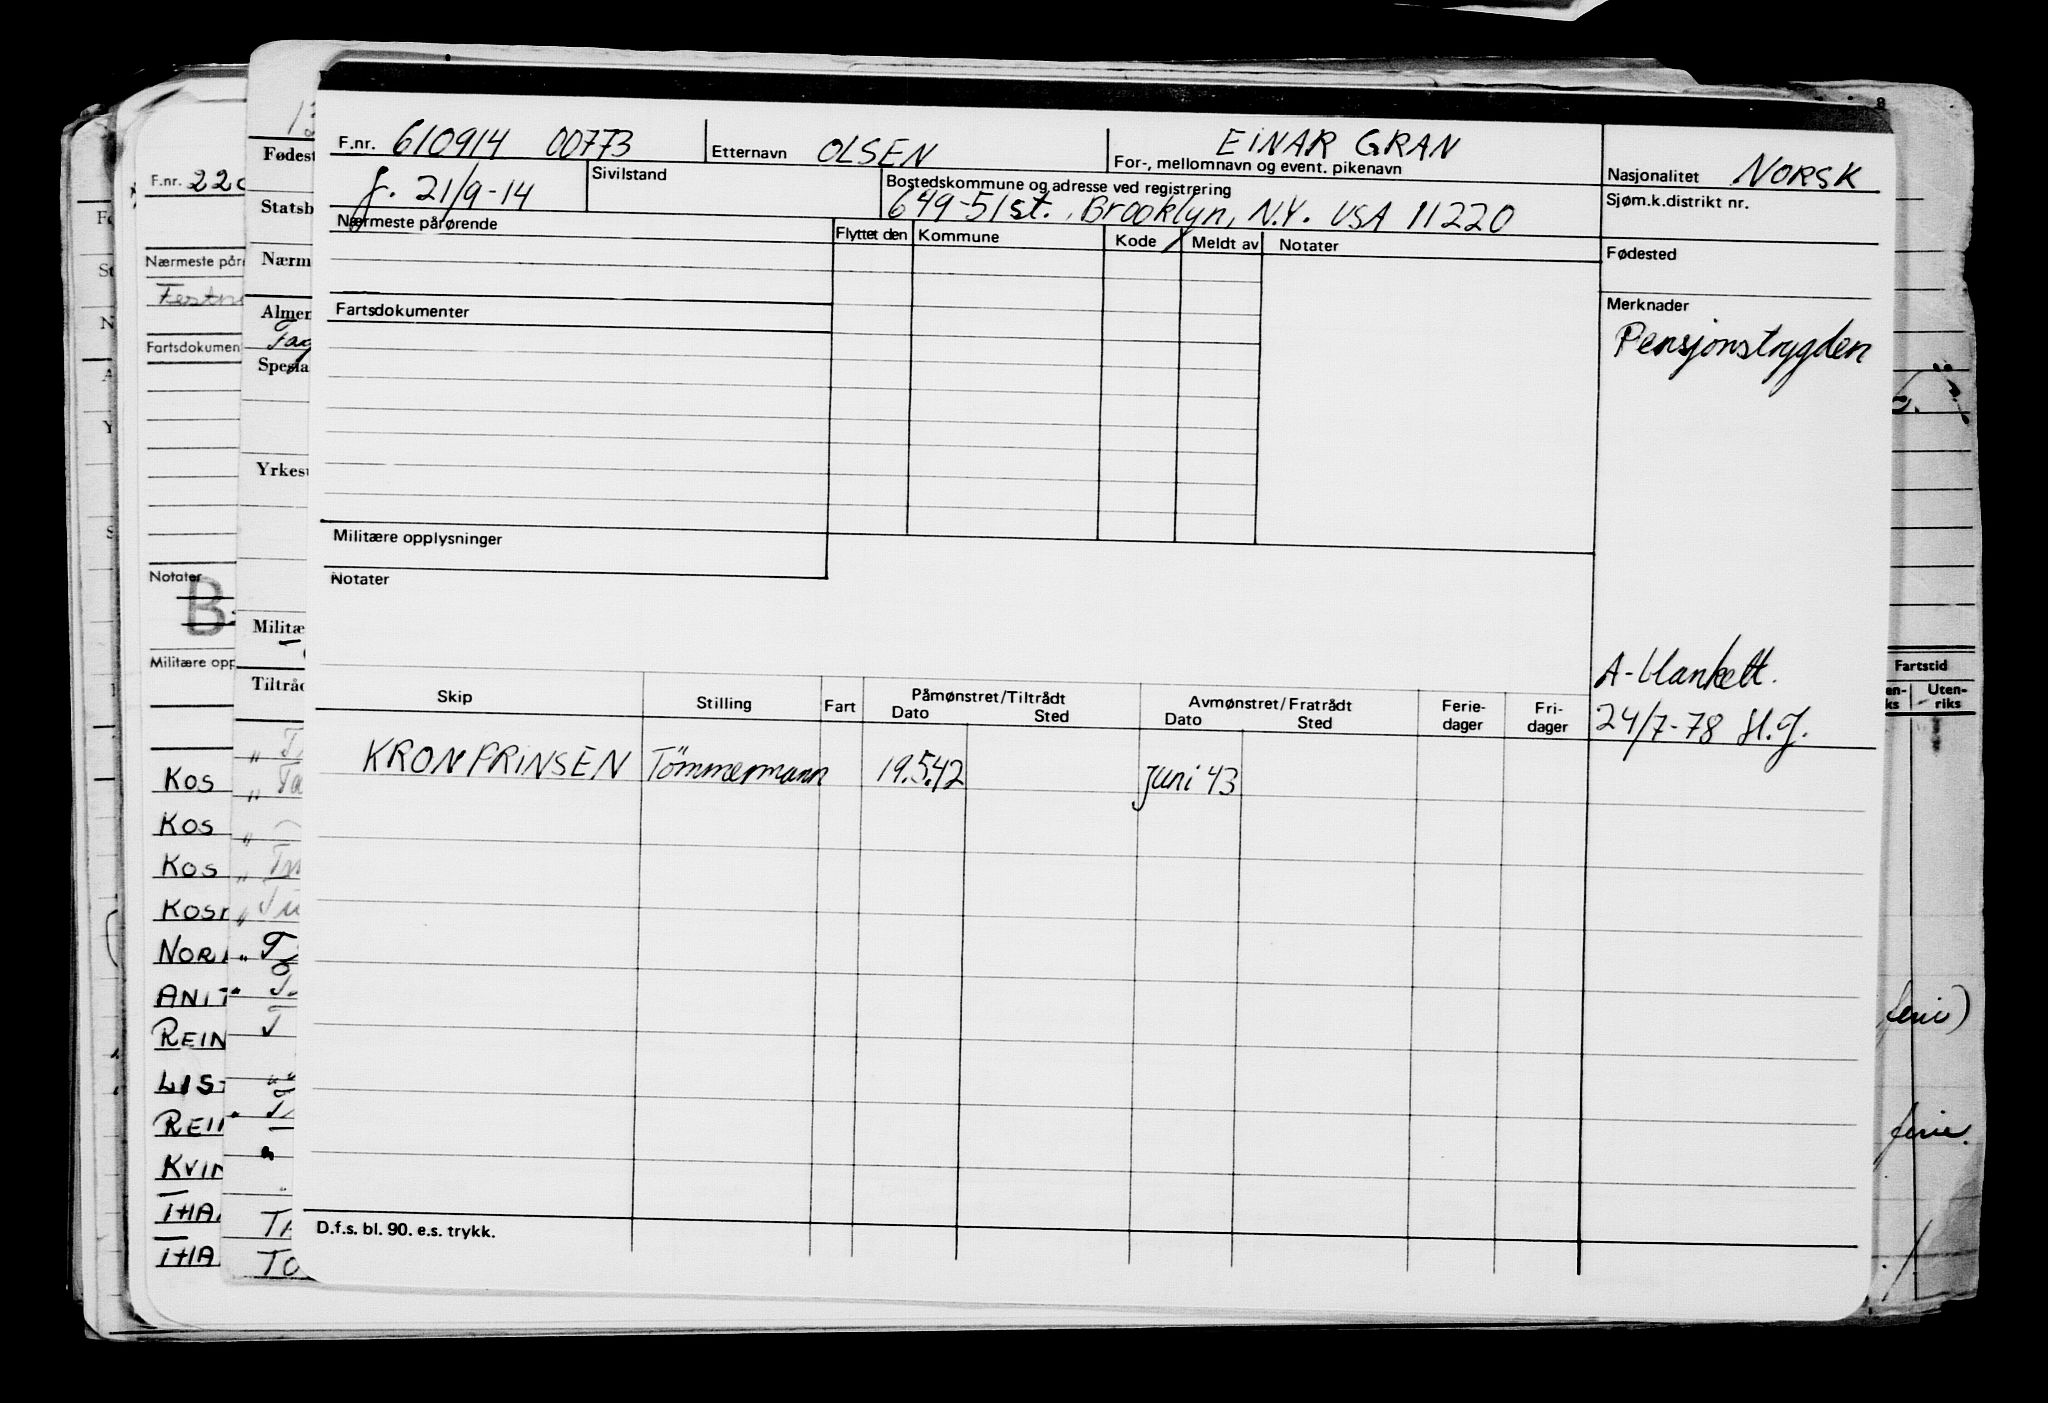 8
F.nr. 610914 00773 Etternavn OLSEN EINAR GRAN
For-, mellomnavn og event. pikenavn
Nasjonalitet NORSK
f. 21/9-14 Sivilstand Bostedskommune og adresse ved registrering
649-51st., Brooklyn, N.Y. USA 11220
Sjøm.k.distrikt nr.
Nærmeste pårørende Flyttet den Kommune Kode Meldt av Notater
Fødested
Fartsdokumenter
Merknader
Pensjonstrygden
Militære opplysninger
Notater
A-blankett.
24/7-78 H.J.
Skip Stilling Fart Påmønstret/Tiltrådt Avmønstret/Fratrådt Ferie-
dager Fri-
dager
Dato Sted Dato Sted
KRONPRINSEN Tömmermann 19.5.42 juni 43
D.f.s. bl. 90. e.s. trykk.
F.nr. 220
Nærmeste pår
Fartsdokument
Notater
B
Militære opp
KOS
KOS
KOS
KOS
NOR
ANIT
REIN
LIS
REI
KVI
THA
THA
Fødest
Statsb
Nærm
Almer
Fag
Spesia
Yrkes
Militæ
Tiltråd
TA
TO
Fartstid
Uten-
riks
ferie)
ferie.